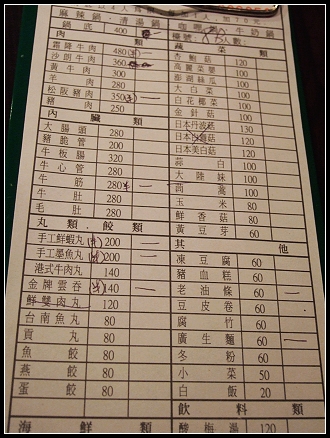 鍋底 400
肉類
霜降牛肉 480
沙朗牛肉 360
黃牛肉 300
羊肉 280
松阪豬肉 350
豬肉 250
內臟類
大腸頭 280
豬脆管 200
牛板腸 320
牛心管 280
牛筋 280
牛肚 280
毛肚 280
丸類.餃類
手工鮮蝦丸 200
手工墨魚丸 200
港式牛肉丸 140
金牌雲吞 140
鮮雙肉丸 120
台南魚丸 80
貢丸 80
魚餃 80
燕餃 80
蛋餃 80
海鮮類
人數:
蔬菜類
杏鮑菇 120
高麗菜嬰 100
澎湖絲瓜 100
大白菜 100
白花椰菜 100
金針菇 100
日本丹波菇 130
日本美白菇 120
蒜白 100
大陸妹 100
茼蒿 100
玉米 80
鮮香菇 80
黃豆芽 60
其他
凍豆腐 60
豬血糕 60
老油條 60
豆皮卷 60
腐竹 60
廣生麵 60
冬粉 60
小菜 50
白飯 20
飲料類
酸梅湯 120